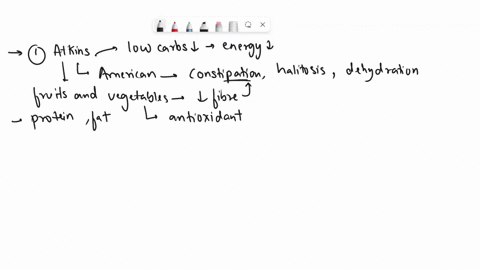 → ① Atkins → low carbs ↓ → energy ↓
↳ American → constipation, halitosis, dehydration
fruits and vegetables → ↓ fibre
→ protein, fat ↳ antioxidant